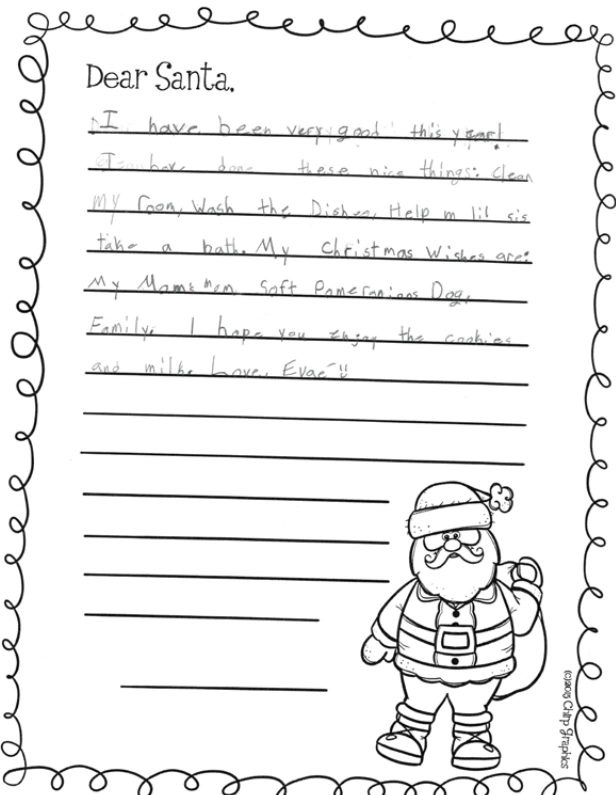 Dear Santa,
I have been very good this year!
I have done these nice things: Clean
My room, Wash the Dishes, Help m lil sis
take a bath. My Christmas Wishes are:
My Moms mom, Soft Pomeranians Dog,
Family. I hope you enjoy the cookies
and milk. Love, Evae
(c)2015 Chirp Graphics